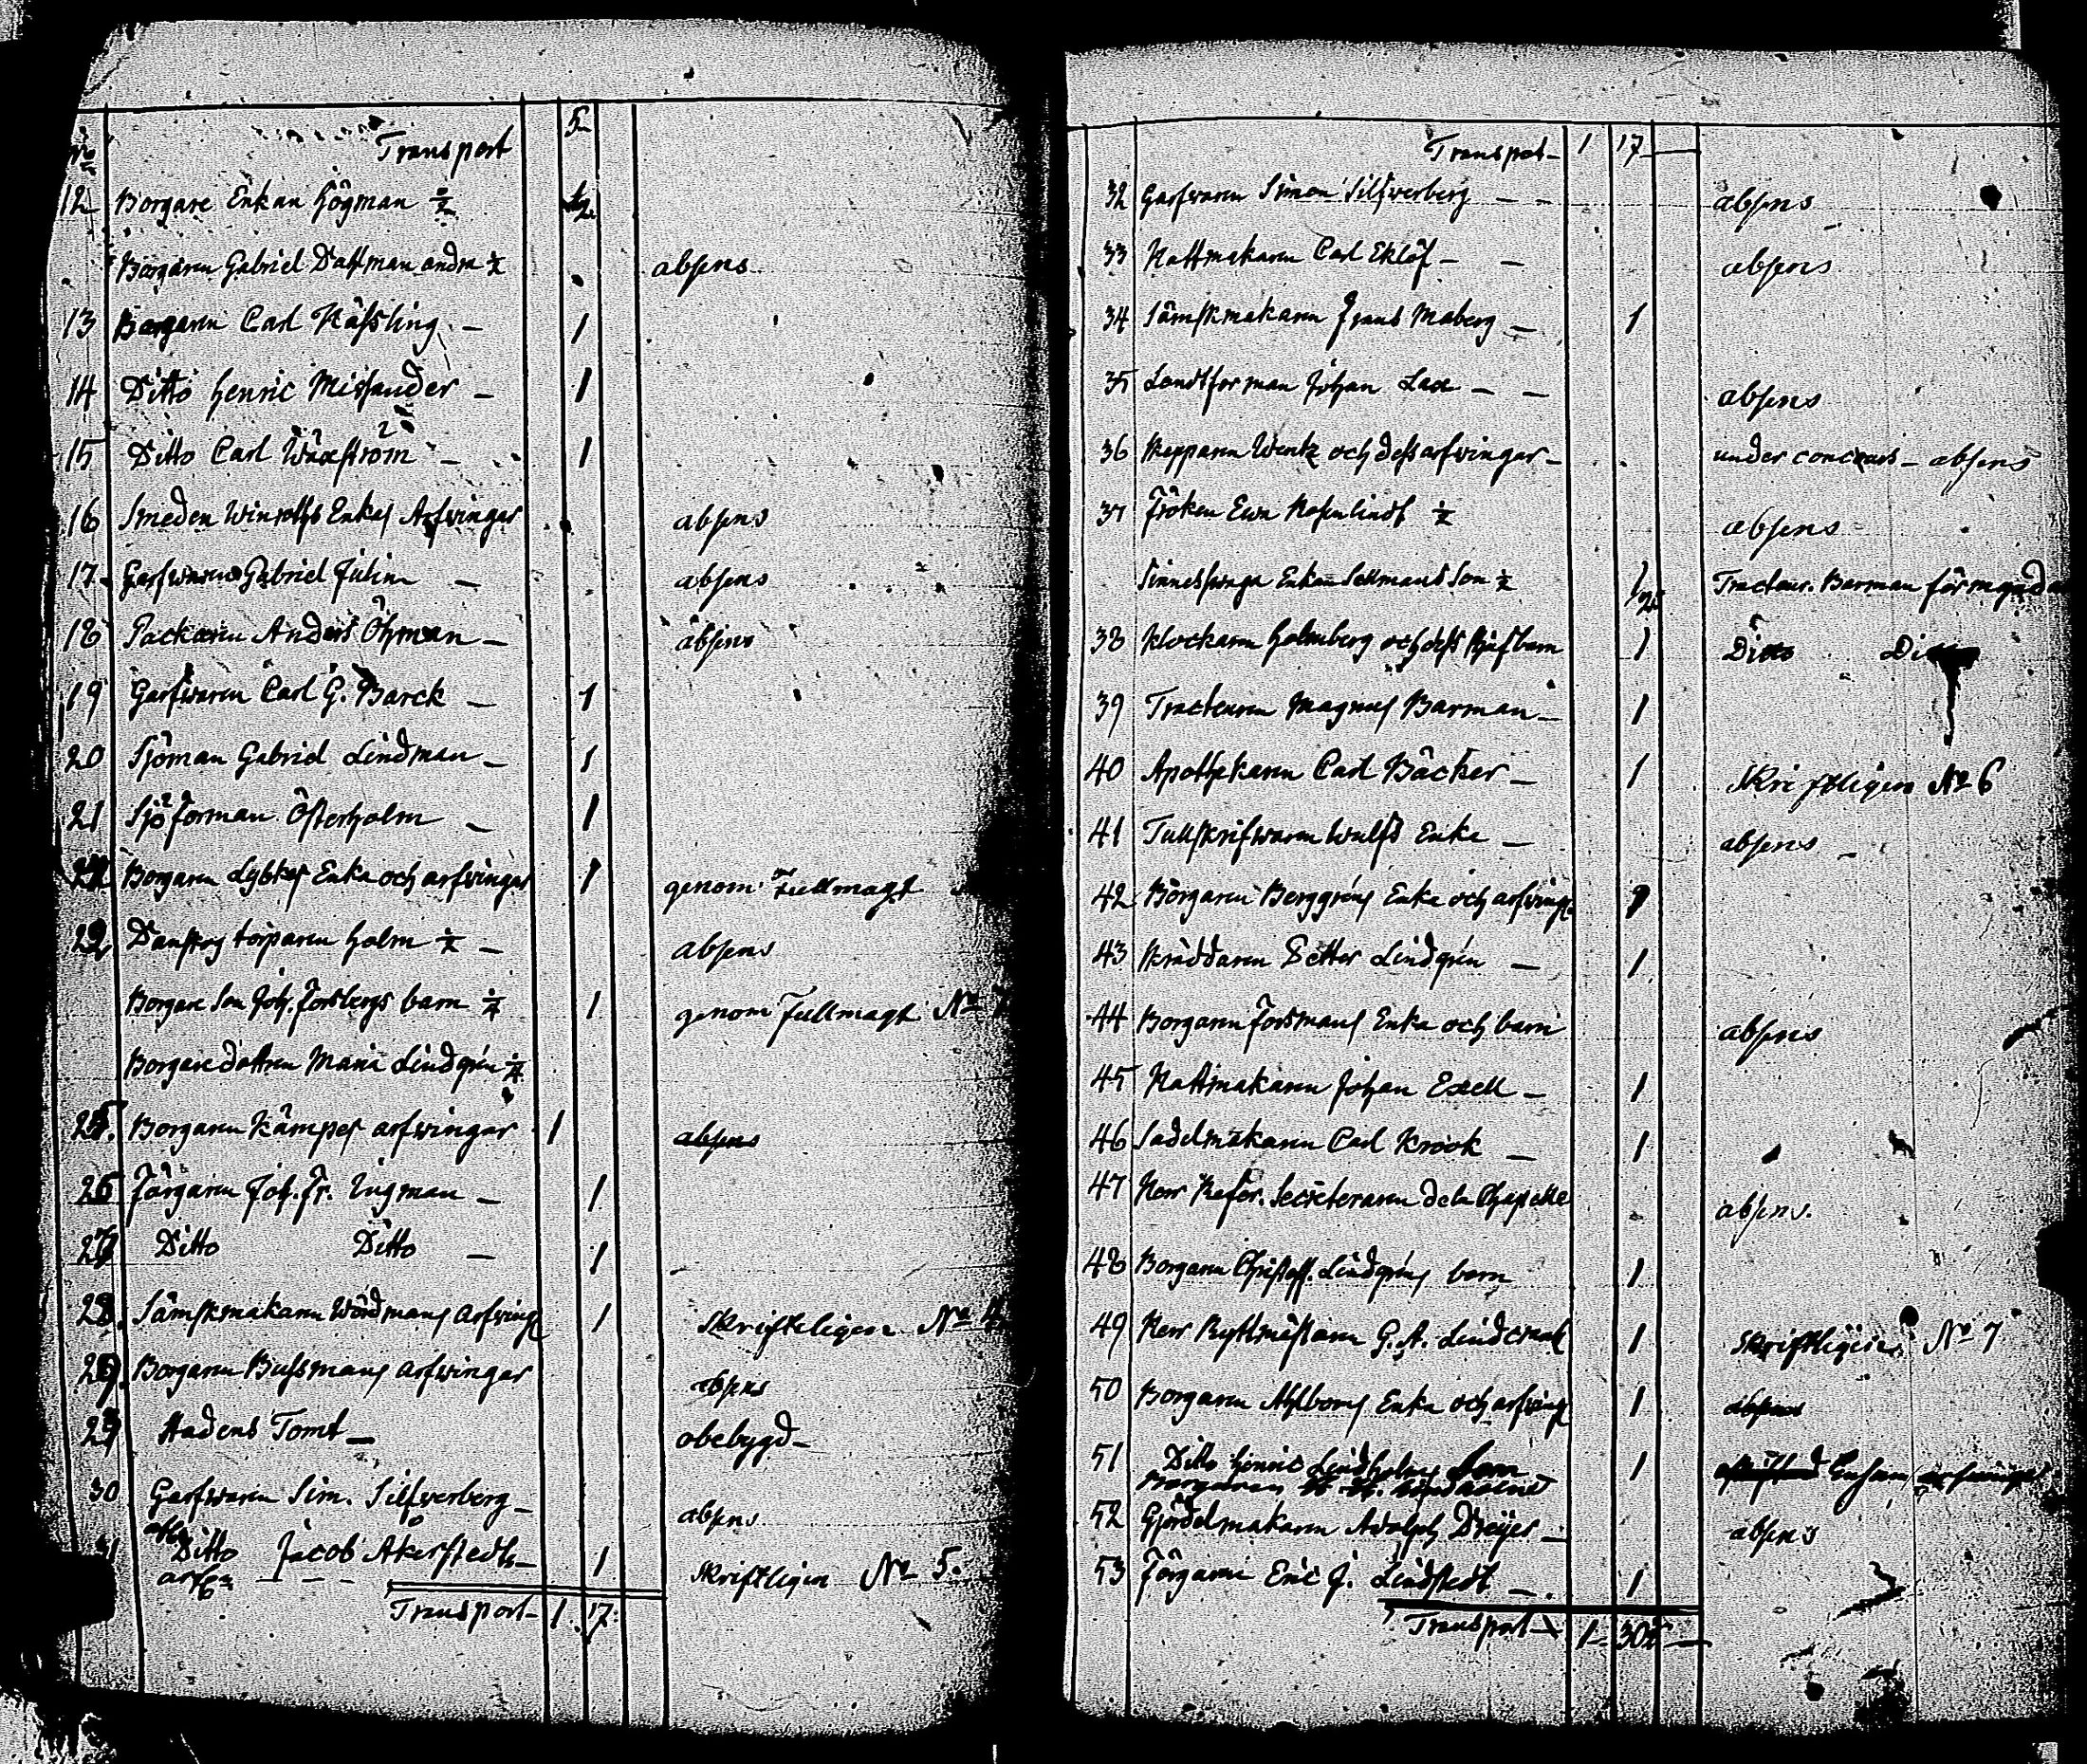 No Transport 5
12 Borgare Enkan Högman ½ ½
Borgaren Gabriel Dallman andra ½ absens
13 Borgaren Carl Kässling — 1
14 Ditto Henric Missander — 1
15 Ditto Carl Wäxström — 1
16 Smeden Winroths Enkas Arfwingar absens
17. Garfwaren Gabriel Julin — absens
18 Packaren Anders Öhman — absens
19 Garfwaren Carl G. Barck — 1
20 Sjöman Gabriel Lindman — 1
21 Sjö Forman Österholm — 1
Borgaren Lybkes Enka och arfwingar 1 genom Fullmagt
torparen Holm ½ — absens
Borgare Son Joh. Forsbergs barn ¼ 1 genom Fullmagt No
Borgare dottren Maria Lindgrén ¼
25. Borgaren Kämpes arfwingar 1 absens
26 Färgaren Joh. Fr. Ingman — 1
27 Ditto Ditto — 1
28. Sämskmakaren Wördmans Arfwing 1 Skrifteligen No 4
Borgaren Bussmans arfwingar absens
29 Stadens Tomt — obebygd —
30 Garfwaren Sim. Silfwerberg — absens
31 Ditto Jacob Åkerstedts — 1 Skriftligen No 5.
Transport — 1. 17.
Transport — 1 17 —
32 Garfwaren Simon Silfwerberg — — absens
33 Hattmakaren Carl Eklöf — — absens
34 Sämskmakaren Frans Moberg — 1
35 Landtforman Johan Lax — — absens
36 Repparen Wentz och dess arfwingar — under concurs — absens
37 Fröken Ewa Rosenlindt ½ absens
Sinnessvaga Enkan Sellmans Son ½ ½ Tracteur. Barman förmyndare
38 Klockaren Holmberg och dess Styfbarn 1 Ditto Ditto
39 Tracteuren Magnus Barman — 1
40 Apothekaren Carl Bäcker — 1 Skriftligen No 6
41 Tullskrifwaren Wulfs Enka — absens —
42 Borgaren Berggréns Enka och arfwing 1
43 Skräddaren Petter Lindgrén — 1
44 Borgaren Forsmans Enka och barn absens
45 Hattmakaren Johan Exell — 1
46 Sadelmakaren Carl Krook — 1
47 Herr Refer. Secreteraren de la Chapelle absens.
48 Borgaren Christoff. Lindgréns barn 1
49 Herr Ryttmästaren G. A. Lindcrantz 1 Skriftligen No 7
50 Borgaren Ahlbons Enka och arfwing 1 absens
51 Ditto Henric Lindholms 1 Enkan arfwingar
52 Gjördelmakaren Adolph Dreijer — absens
53 Färgaren Eric J. Lindstedt — 1
Transport — 1 — 30½ —